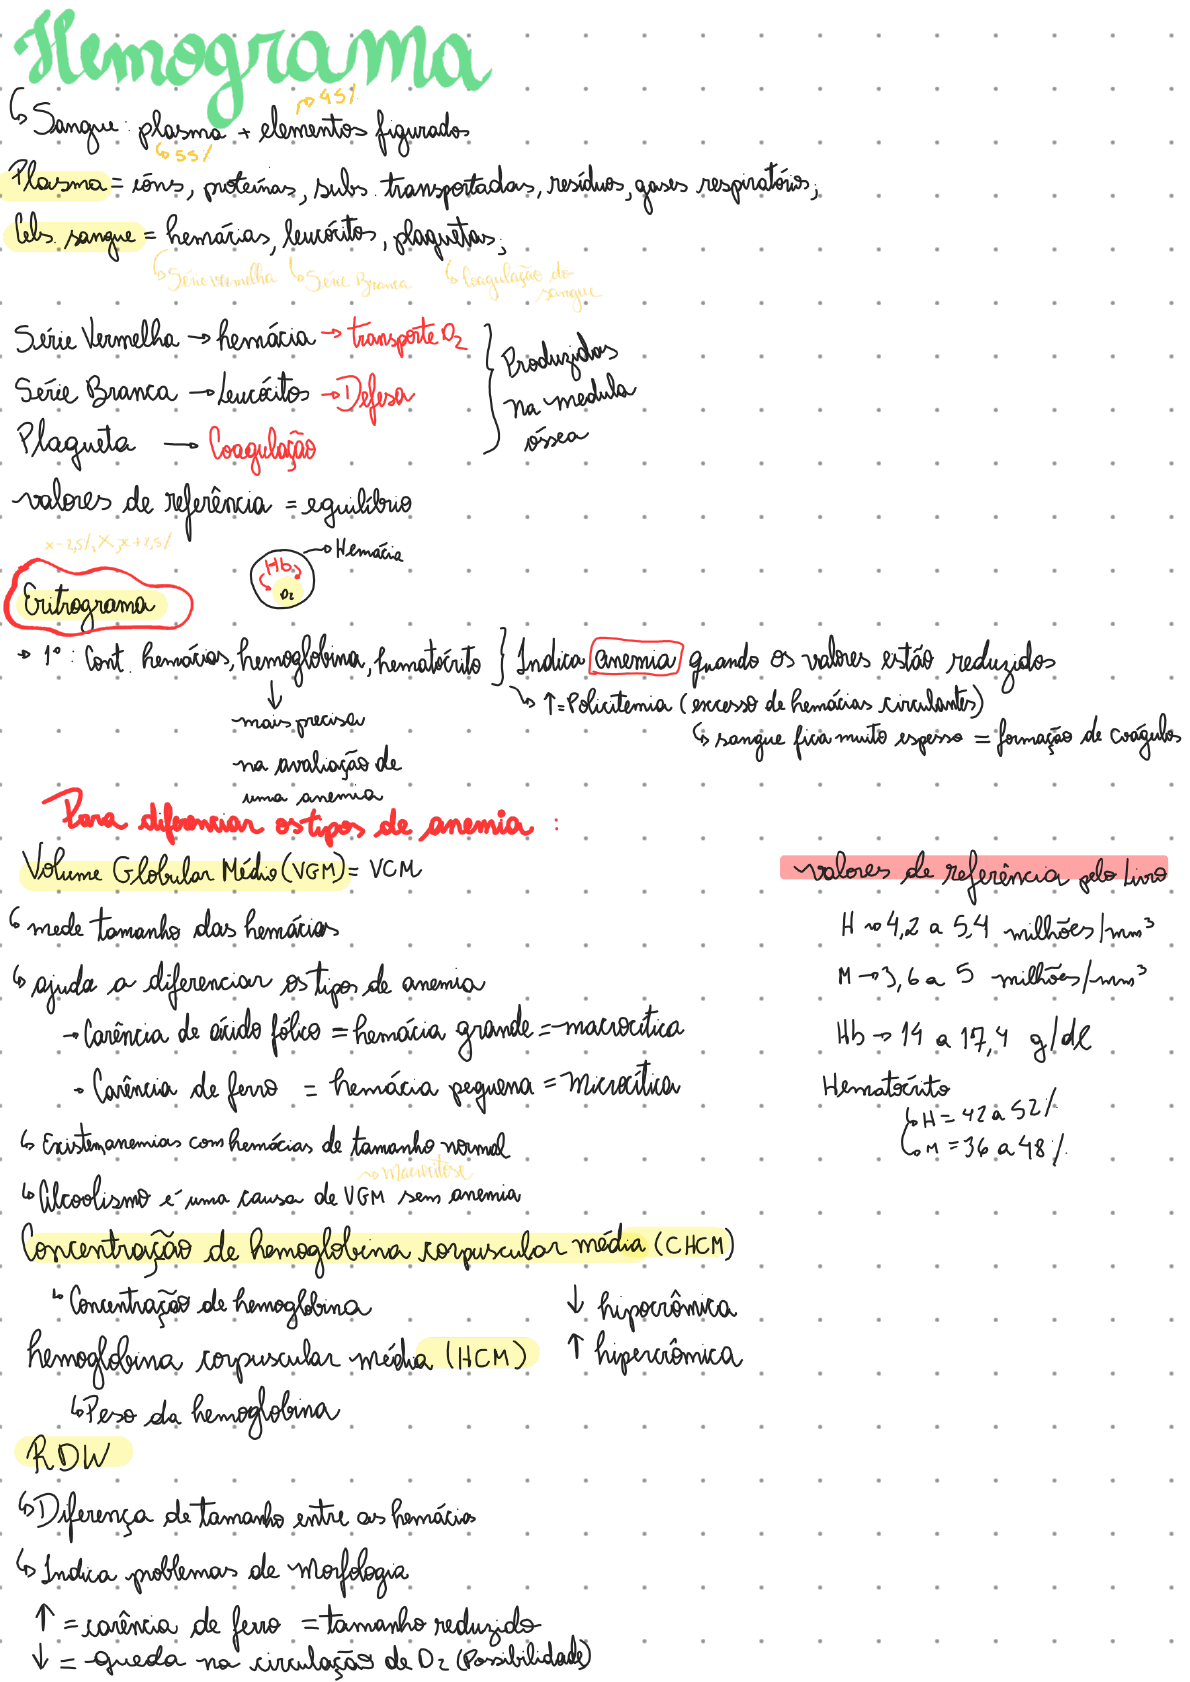 Hemograma
↳ Sangue: plasma + elementos figurados
→ 45%
↳ 55%
Plasma = íons, proteínas, subs. transportadas, resíduos, gases respiratórios;
Céls. sangue = hemácias, leucócitos, plaquetas;
↳ Série vermelha ↳ Série Branca ↳ Coagulação do sangue
Série Vermelha → hemácia → transporte O2
Série Branca → Leucócitos → Defesa
Plaqueta → Coagulação
Produzidas
na medula
óssea
valores de referência = equilíbrio
x-2,5%, X, x+2,5%
→ Hemácia
Hb
O2
Eritrograma
→ 1º: Cont. hemácias, hemoglobina, hematócrito } Indica anemia quando os valores estão reduzidos
↳ ↑ = Policitemia (excesso de hemácias circulantes)
↳ sangue fica muito espesso = formação de coágulos
↓
mais precisa
na avaliação de
uma anemia
Para diferenciar os tipos de anemia:
Volume Globular Médio (VGM) = VCM
↳ mede tamanho das hemácias
↳ ajuda a diferenciar os tipos de anemia
→ Carência de ácido fólico = hemácia grande = macrocítica
→ Carência de ferro = hemácia pequena = Microcítica
↳ Existem anemias com hemácias de tamanho normal
→ Macrocitose
↳ Alcoolismo é uma causa de VGM sem anemia
valores de referência pelo Livro
H → 4,2 a 5,4 milhões/mm³
M → 3,6 a 5 milhões/mm³
Hb → 14 a 17,4 g/dl
Hematócrito
↳ H = 42 a 52%
↳ M = 36 a 48%
Concentração de hemoglobina corpuscular média (CHCM)
↳ Concentração de hemoglobina
↓ hipocrômica
hemoglobina corpuscular média (HCM)
↑ hipercrômica
↳ Peso da hemoglobina
RDW
↳ Diferença de tamanho entre as hemácias
↳ Indica problemas de Morfologia
↑ = carência de ferro = tamanho reduzido
↓ = queda na circulação de O2 (Possibilidade)